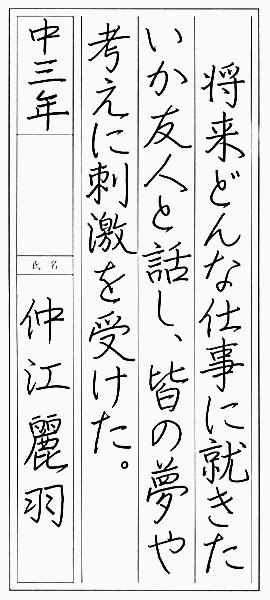 将来どんな仕事に就きた
いか友人と話し、皆の夢や
考えに刺激を受けた。
中三年
氏名
仲江麗羽